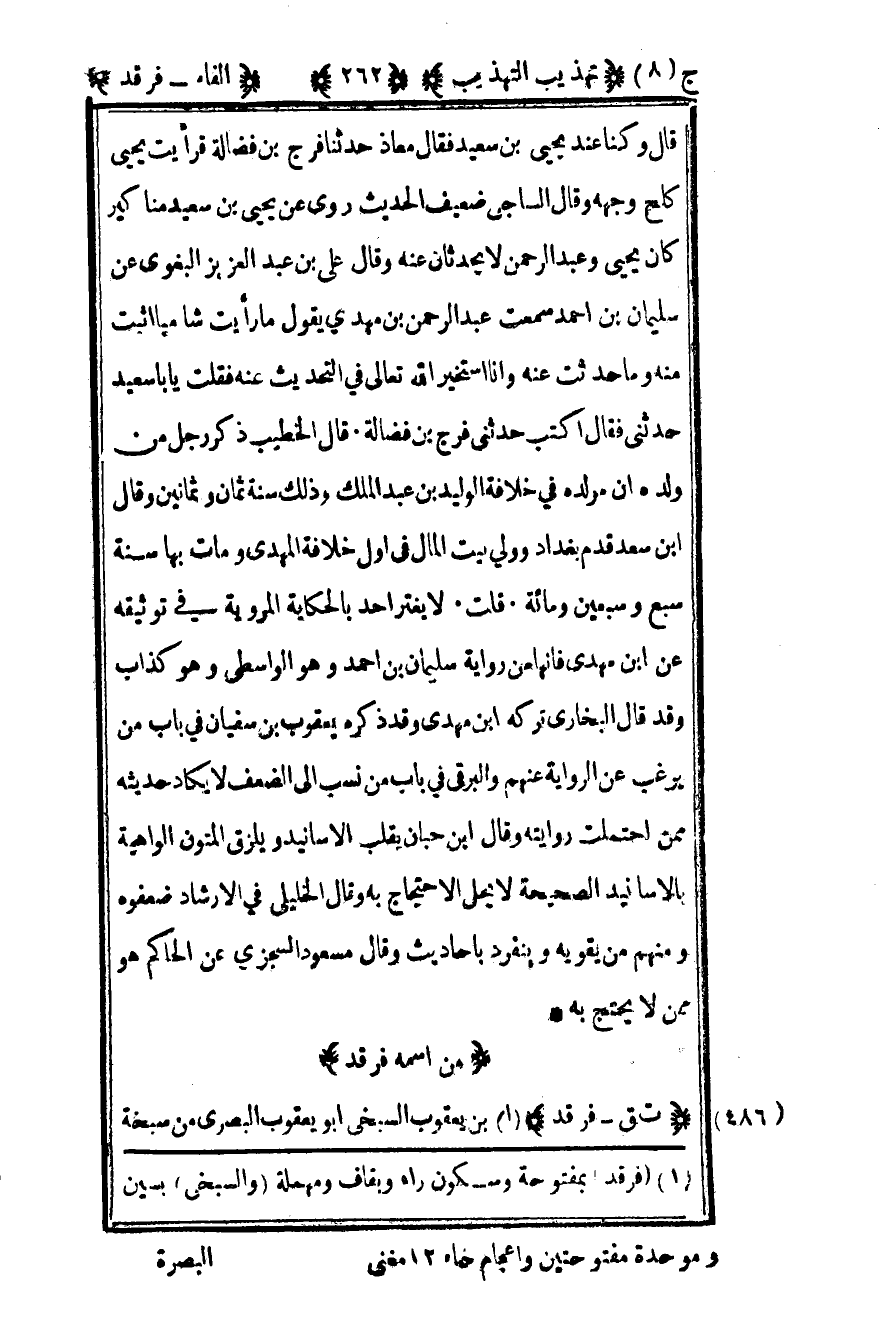 ج (٨) ﴿ تهذيب التهذيب ﴾ ﴿ ٢٦٢ ﴾ ﴿ الفاء ــ فرقد ﴾
قال وكنا عند يحيى بن سعيد فقال معاذ حدثنا فرج بن فضالة فرأيت يحيى
كلح وجهه وقال الساجى ضعيف الحديث روى عن يحيى بن سعيد مناكير
كان يحيى وعبد الرحمن لا يحدثان عنه وقال على بن عبد العزيز البغوى عن
سليمان بن احمد سمعت عبد الرحمن بن مهدي يقول ما رأيت شاميا اثبت
منه وما حدثت عنه وانا استخير الله تعالى في التحديث عنه فقلت يا با سعيد
حدثنى فقال اكتب حدثنى فرج بن فضالة · قال الخطيب ذكر رجل من
ولده ان مولده في خلافة الوليد بن عبد الملك وذلك سنة ثمان وثمانين وقال
ابن سعد قدم بغداد وولي بيت المال فى اول خلافة المهدى ومات بها سنة
سبع وسبعين ومائة · قلت · لا يغتر احد بالحكاية المروية في توثيقه
عن ابن مهدى فانها من رواية سليمان بن احمد وهو الواسطى وهو كذاب
وقد قال البخارى تركه ابن مهدى وقد ذكره يعقوب بن سفيان في باب من
يرغب عن الرواية عنهم والبرقى في باب من نسب الى الضعف لا يكاد حديثه
ممن احتملت روايته وقال ابن حبان يقلب الاسانيد ويلزق المتون الواهية
بالاسانيد الصحيحة لا يحل الاحتجاج به وقال الخليلى في الارشاد ضعفوه
ومنهم من يقويه وينفرد باحاديث وقال مسعود السجزي عن الحاكم هو
ممن لا يحتج به *
﴿ من اسمه فرقد ﴾
(٤٨٦) ﴿ ت ق ــ فرقد ﴾ (١) بن يعقوب السبخى ابو يعقوب البصرى من سبخة
(١) (فرقد) بمفتوحة وسكون راء وبقاف ومهملة (والسبخى) بسين
وموحدة مفتوحتين واعجام خاء ١٢ مغنى
البصرة